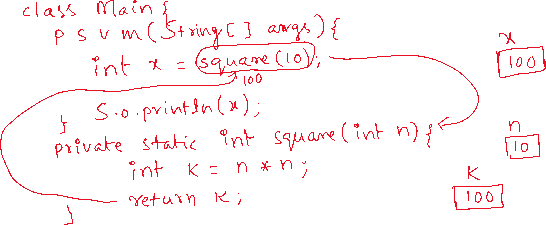 class Main{
p s v m (String [ ] args){
int x = square(10);
100
S.o.println(x);
}
private static int square(int n){
int k = n * n;
return k;
}
x
100
n
10
k
100